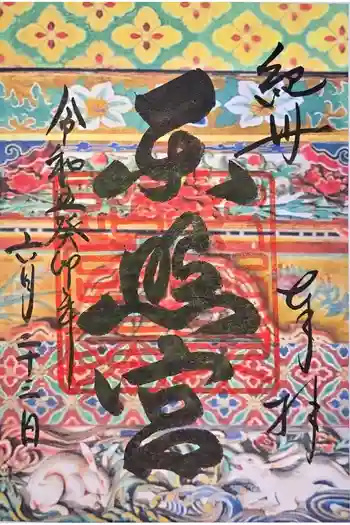 紀州
奉拝
東照宮
令和五癸卯年
六月二十二日